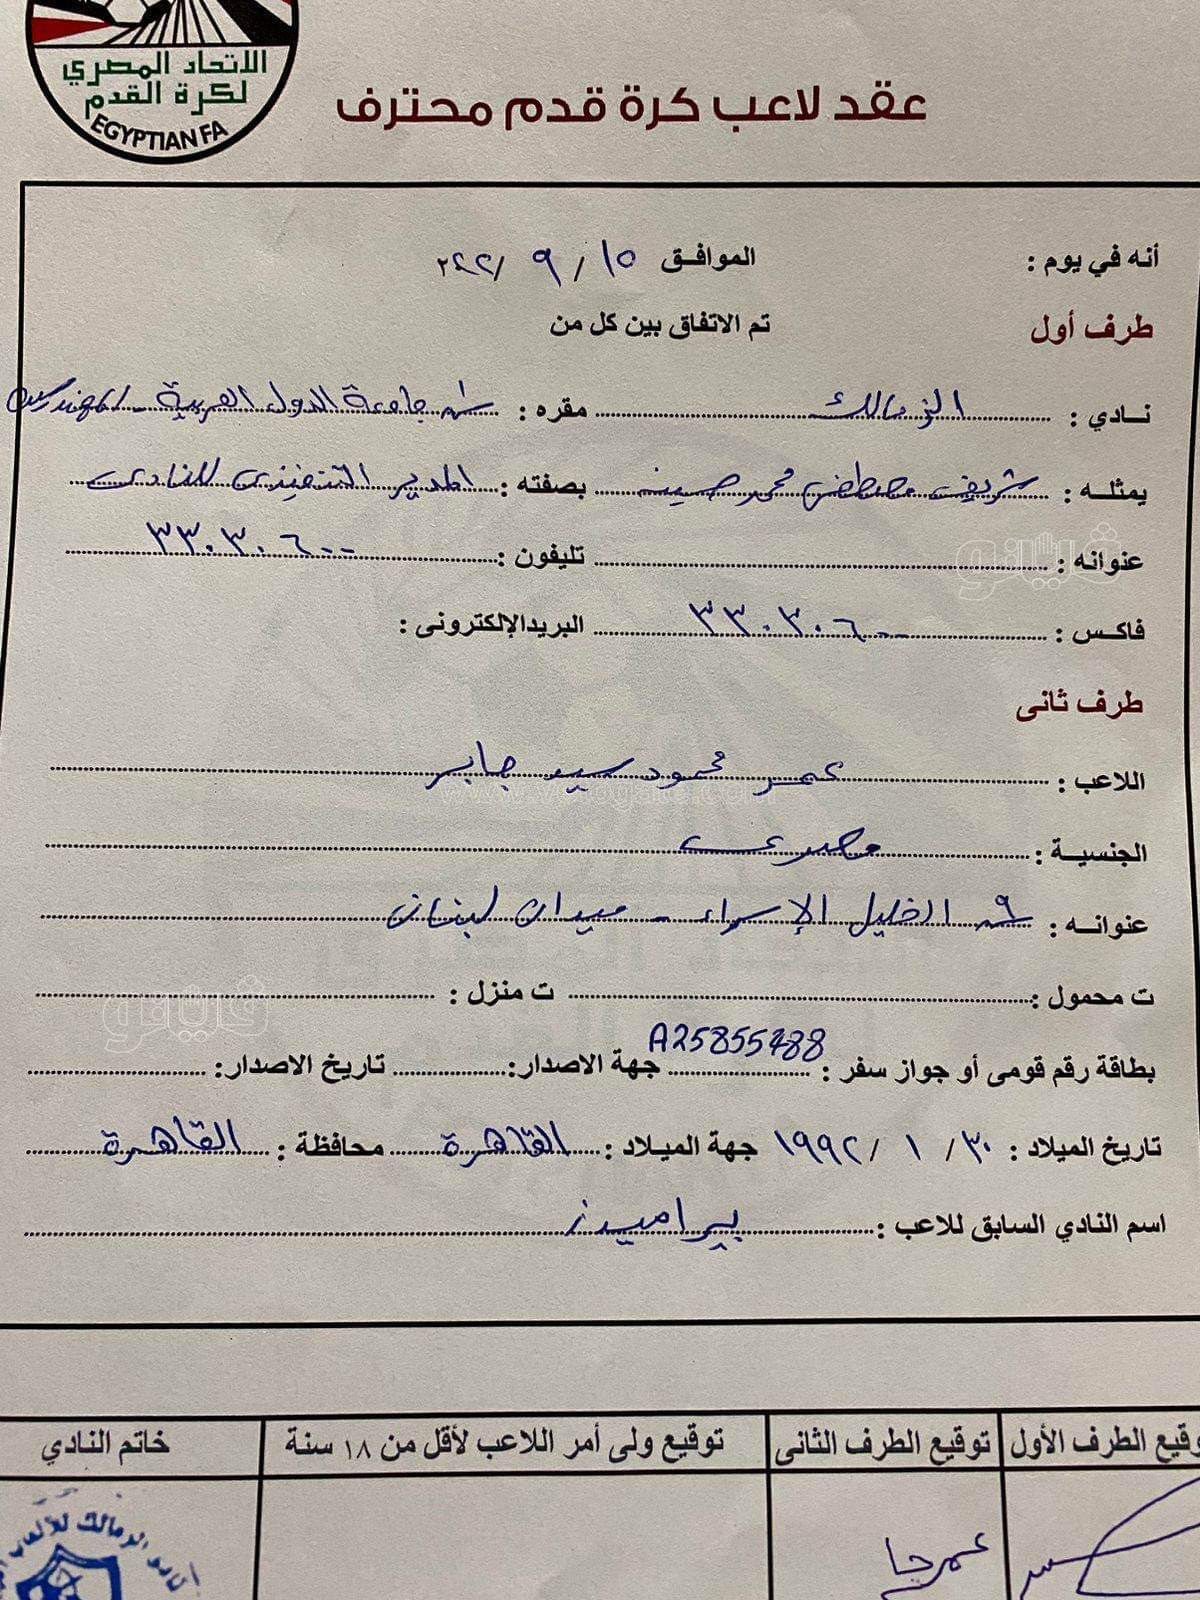 الاتحاد المصري
لكرة القدم
EGYPTIAN FA
عقد لاعب كرة قدم محترف
أنه في يوم : الموافق ١٥ / ٩ / ٢٠٢٢
طرف أول تم الاتفاق بين كل من
نادي : الزمالك مقره : ش جامعة الدول العربية - المهندسين
يمثله : شريف مصطفى محمد حسينه بصفته : المدير التنفيذى للنادى
عنوانه : تليفون : ٣٣٠٣٠٦٠٠
فاكس : ٣٣٠٣٠٦٠٠ البريدالإلكترونى :
طرف ثانى
اللاعب : عمر محمود سيد جابر
الجنسية : مصرى
عنوانه : ٩ ش الخليل الإسراء - ميدان لبنان
ت محمول : ت منزل :
بطاقة رقم قومى أو جواز سفر : A25855488 جهة الاصدار: تاريخ الاصدار:
تاريخ الميلاد : ٣٠ / ١ / ١٩٩٢ جهة الميلاد : القاهرة محافظة : القاهرة
اسم النادي السابق للاعب : بيراميدز
توقيع الطرف الأول توقيع الطرف الثانى توقيع ولى أمر اللاعب لأقل من ١٨ سنة خاتم النادي
عمر جا
نادي الزمالك للألعاب
فايتو
www.vetogate.com
فايتو